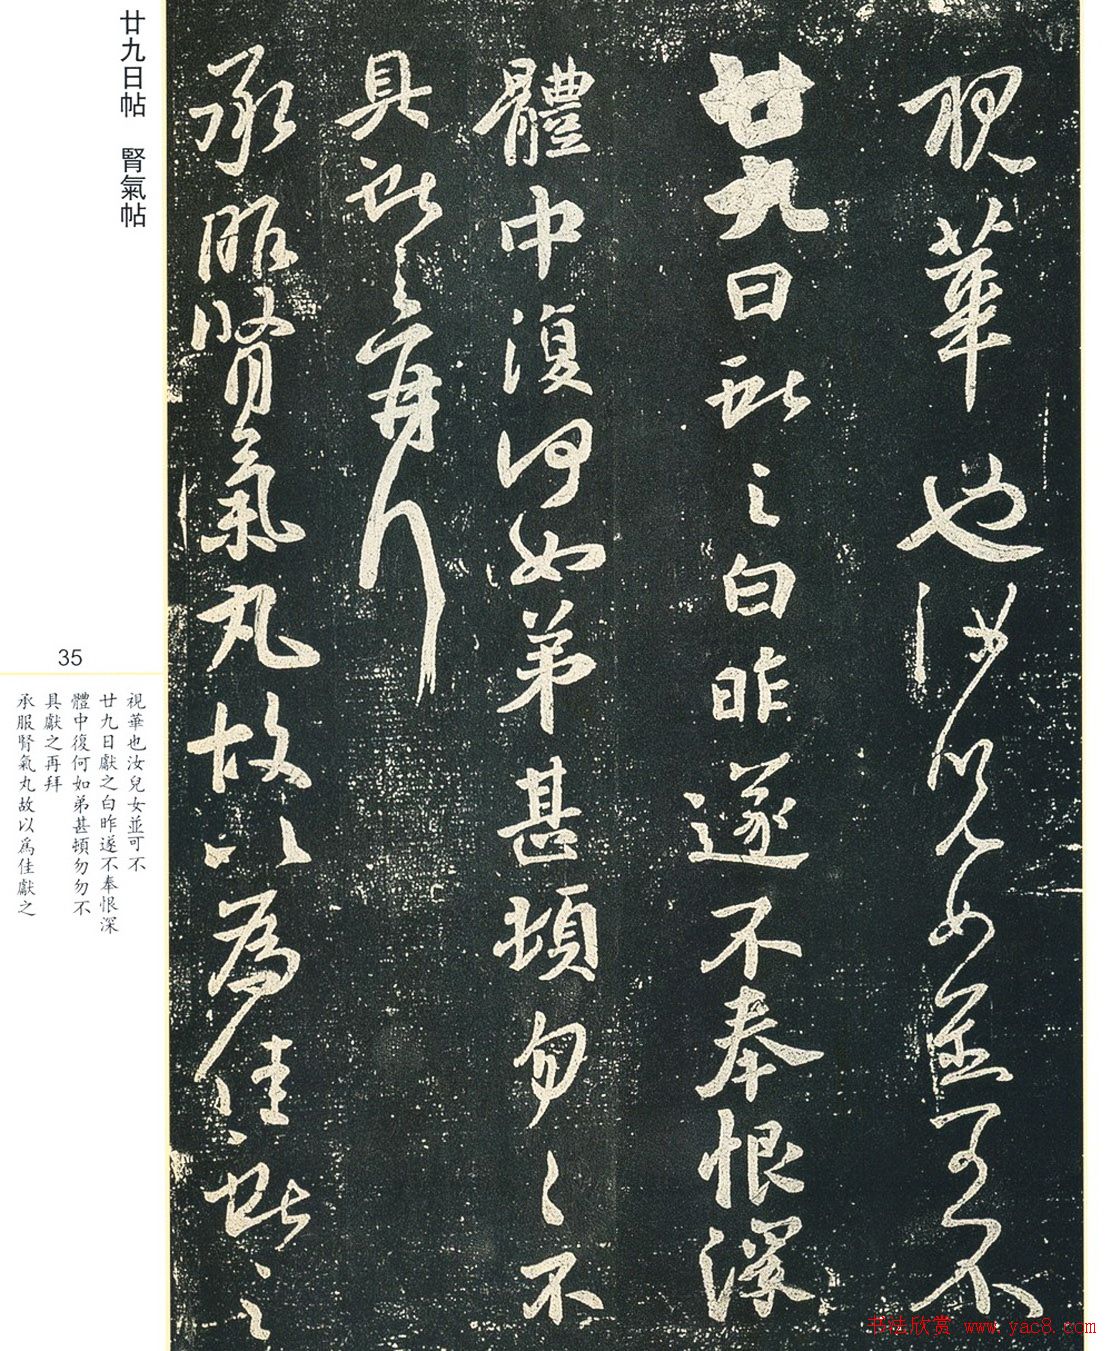 視華也汝兒女並可不
廿九日獻之白昨遂不奉恨深
體中復何如弟甚頓勿〻不
具獻之再拜
承服腎氣丸故以為佳獻之
廿九日帖　腎氣帖
35
視華也汝兒女並可不
廿九日獻之白昨遂不奉恨深
體中復何如弟甚頓勿勿不
具獻之再拜
承服腎氣丸故以爲佳獻之
书法欣赏 www.yac8.com